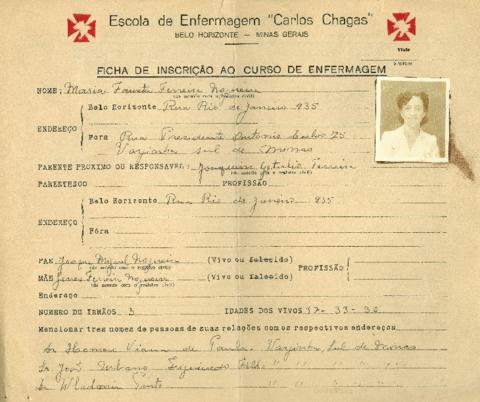 Escola de Enfermagem "Carlos Chagas"
BELO HORIZONTE — MINAS GERAIS
Visto
FICHA DE INSCRIÇÃO AO CURSO DE ENFERMAGEM
NOME: Maria Ferreira Nogueira
(de acordo com o registro civil)
Belo Horizonte Rua Rio de Janeiro 935
ENDEREÇO
Fóra Rua Presidente Antonio Carlos 25
Varginha Sul de Minas
PARENTE PROXIMO OU RESPONSAVEL: Joaquim Getulio Ferreira
(de acordo com o registro civil)
PARENTESCO PROFISSÃO
Belo Horizonte Rua Rio de Janeiro 935
ENDEREÇO
Fóra
PAE: Miguel Nogueira (Vivo ou falecido)
(de acordo com o registro civil)
PROFISSÃO
MÃE Ferreira Nogueira (Vivo ou falecido)
(de acordo com o registro civil)
Endereço
NUMERO DE IRMÃOS 3 IDADES DOS VIVOS 37-33-30
Mencionar tres nomes de pessoas de suas relações com os respectivos endereços
Sr Homero Vianna de Paula Varginha, Sul de Minas
Sr. José Urbano Figueiredo Filho " " " "
Sr Wladimir Pinto " " " "